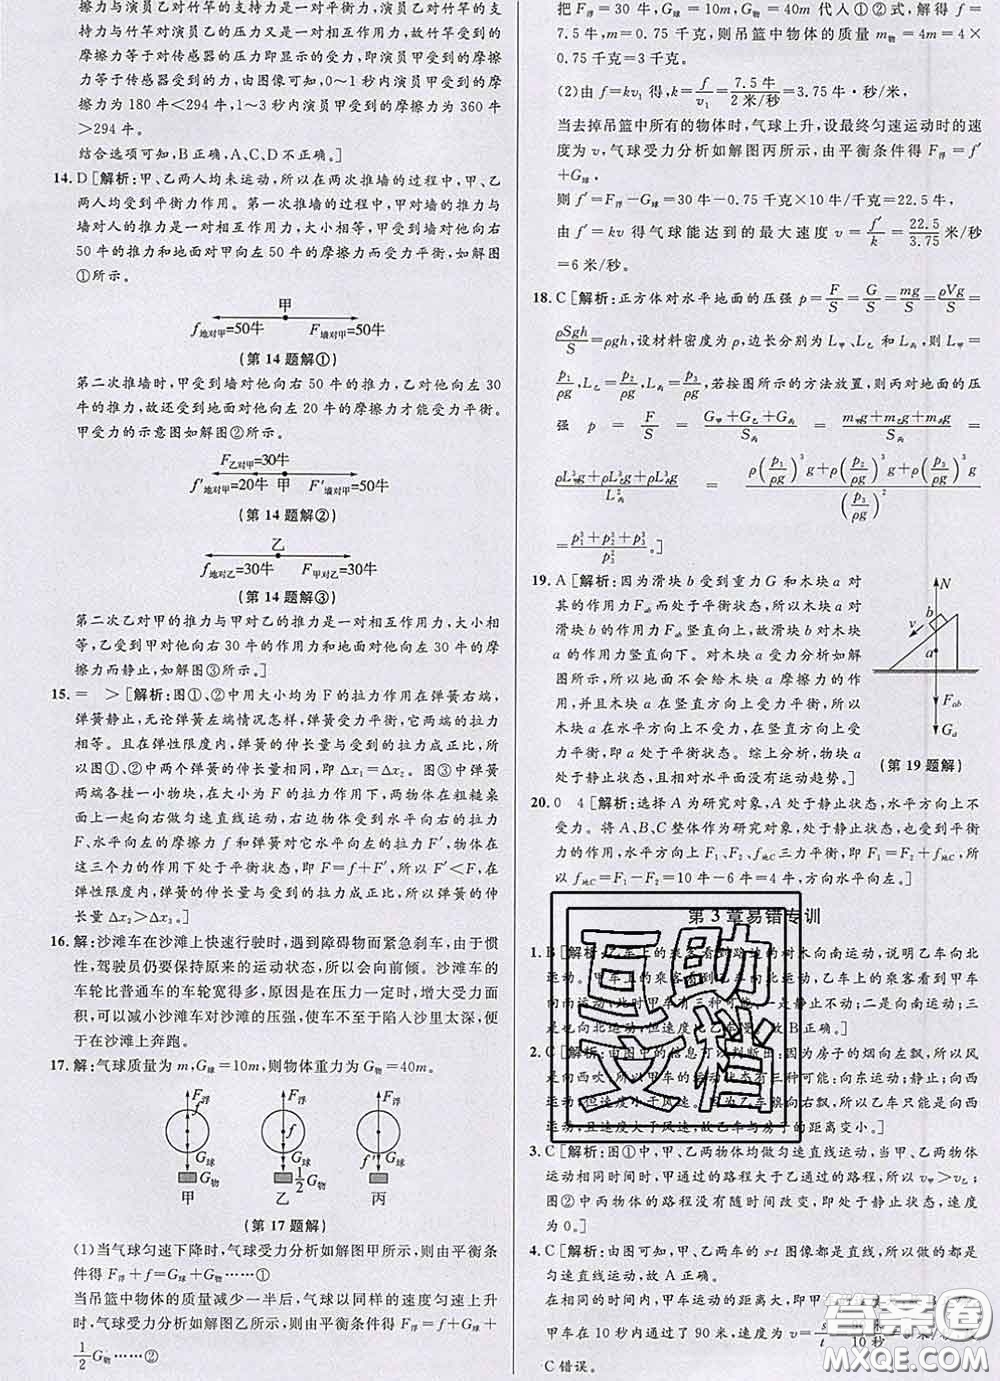 支持力与演员甲对竹竿的支持力是一对平衡力,演员乙对竹竿的
支持力与竹竿对演员乙的压力又是一对相互作用力,故竹竿受到
的摩擦力等于传感器的压力即显示的受力,即演员甲受到的摩擦
力等于传感器受到的力,由图像可知,0~1秒内演员甲受到的摩
擦力为 180 牛<294 牛,1~3 秒内演员甲受到的摩擦力为 360 牛
>294 牛。
结合选项可知,B正确,A、C、D不正确。]
14. D [解析:甲、乙两人均未运动,所以在两次推墙的过程中,甲、乙
两人均受到平衡力作用。第一次推墙的过程中,甲对墙的推力与
墙对人的推力是一对相互作用力,大小相等,甲受到墙对他向右
50 牛的推力和地面对甲向左 50 牛的摩擦力而受力平衡,如解图
①所示。
甲
f地对甲=50牛 F墙对甲=50牛
(第 14 题解①)
第二次推墙时,甲受到墙对他向右 50 牛的推力,乙对他向左 30
牛的推力,故还受到地面对他向左 20 牛的摩擦力才能受力平衡。
甲受力的示意图如解图②所示。
F乙对甲=30牛
f′地对甲=20牛 甲 F′墙对甲=50牛
(第 14 题解②)
乙
f地对乙=30牛 F甲对乙=30牛
(第 14 题解③)
第二次乙对甲的推力与甲对乙的推力是一对相互作用力,大小相
等,乙受到甲对他向右 30 牛的作用力和地面对他向左 30 牛的摩
擦力而静止,如解图③所示。]
15. = > [解析:图①、②中用大小均为 F 的拉力作用在弹簧右端,
弹簧静止,无论弹簧左端情况怎样,弹簧受力平衡,它两端的拉力
相等。且在弹性限度内,弹簧的伸长量与受到的拉力成正比,所
以图①、②中两个弹簧的伸长量相同,即 Δx₁=Δx₂。图③中弹簧
两端各拴一小物块,在大小为 F 的拉力作用下,两物体在粗糙桌
面上一起向右做匀速直线运动,右边物块受到水平向右的拉力
F、水平向左的摩擦力 f 和弹簧对它水平向左的力 F′,物体在
这三个力的作用下处于平衡状态,即 F=f+F′,所以 F′<F。在
弹性限度内,弹簧的伸长量与受到的拉力成正比,所以弹簧的伸
长量 Δx₂>Δx₃。]
16. 解:沙滩车在沙滩上快速行驶时,遇到障碍物而紧急刹车,由于惯
性,驾驶员仍要保持原来的运动状态,所以会向前倾。沙滩车的
车轮比普通车的车轮宽得多,原因是在压力一定时,增大受力面
积,可以减小沙滩车对沙滩的压强,使车不至于陷入沙里太深,便
于在沙滩上奔跑。
17. 解:气球质量为 m,G球=10m,则物体重力为 G物=40m。
F浮 F浮 F浮
f f
G球 G球 f′ G球
G物 ½G物
甲 乙 丙
(第 17 题解)
(1)当气球匀速下降时,气球受力分析如解图甲所示,则由平衡条
件得 F浮+f=G球+G物……①
当吊篮中物体的质量减少一半后,气球以同样的速度匀速上升
时,气球受力分析如解图乙所示,则由平衡条件得 F浮=f+G球+
½G物……②
把 F浮=30 牛,G球=10m,G物=40m 代入①②式,解得 f=
7.5牛,m=0.75 千克,则吊篮中物体的质量 m物=4m=4×
0.75千克=3千克。
(2)由 f=kv₁ 得,k=f/v₁=7.5牛/2米/秒=3.75 牛·秒/米,
当去掉吊篮中所有的物体时,气球上升,设最终匀速运动时的速
度为 v,气球受力分析如解图丙所示,由平衡条件得 F浮=f′
+G球,
则 f′=F浮-G球=30 牛-0.75 千克×10 牛/千克=22.5牛,
由 f′=kv 得气球能达到的最大速度 v=f′/k=22.5/3.75米/秒
=6米/秒。
18. C [解析:正方体对水平地面的压强 p=F/S=G/S=mg/S=ρVg/S=
ρSgh/S=ρgh,设材料密度为 ρ,边长分别为 L甲、L乙 和 L丙,则 L甲=
p₁/ρg,L乙=p₂/ρg,L丙=p₃/ρg,若按图所示的方法放置,则丙对地面的压
强 p=F/S=(G甲+G乙+G丙)/S丙=(m甲g+m乙g+m丙g)/S丙=
(ρL³甲g+ρL³乙g+ρL³丙g)/L²丙=(ρ(p₁/ρg)³g+ρ(p₂/ρg)³g+ρ(p₃/ρg)³g)/(p₃/ρg)²
=(p₁³+p₂³+p₃³)/p₃²。]
19. A [解析:因为滑块 b 受到重力 G 和木块 a 对
其的作用力 Fab 而处于平衡状态,所以木块 a 对
滑块 b 的作用力 Fab 竖直向上,故滑块 b 对木块
a 的作用力竖直向下。对木块 a 受力分析如解
图,所以地面不会给木块 a 摩擦力的作
用,并且木块 a 在竖直方向上受力平衡,所以
木块 a 在水平方向上不受力,在竖直方向上受力
平衡,即 a 处于平衡状态。综上分析,物块 a 处
于静止状态,且相对水平面没有运动趋势。]
N
b
v
a
Fab
Ga
(第 19 题解)
20. 0 4 [解析:选择 A 为研究对象,A 处于静止状态,水平方向上不
受力。将 A、B、C 整体作为研究对象,处于静止状态,也受到平衡
力的作用,水平方向上 F₁、F₂、f地C 三力平衡,即 F₁=F₂+f地C,所
以 f地C=F₁-F₂=10 牛-6 牛=4 牛,方向水平向左。]
第 3 章易错专训
1. B [解析:乙车上的乘客看到路边的树木向南运动,说明乙车向北
运动。甲车上的乘客看到乙车向北运动,乙车上的乘客看到甲车
向南运动,则甲车有三种可能,一是不动;二是向南运动;三
是也向北运动,但速度比乙车慢。故 B 正确。]
2. C [解析:由图中的信息可以判断出:因为房子的烟向左飘,所以风
是向西吹,所以甲车的运动状态有三种可能:向东运动,静止,向西
运动,且速度小于风速。因乙车旗向右飘,所以乙车只能是向西
运动,且速度大于风速,故乙车与房子的距离变小。]
3. C [解析:图①中,甲、乙两物体均做匀速直线运动,这两个物体
运动相同时间时,甲通过的路程大于乙通过的路程,所以 v甲>v乙;
图②中两物体的路程没有随时间改变,即处于静止状态,速度
为 0。]
4. C [解析:由图可知,甲、乙两车的 s-t 图像都是直线,所以做的都是
匀速直线运动,故 A 正确。
在相同的时间内,甲车运动的距离大,即甲
甲车在 10 秒内通过了 90 米,速度为 v=s/t
10秒
C 错误。
互助文档
答案圈
MXQE.COM